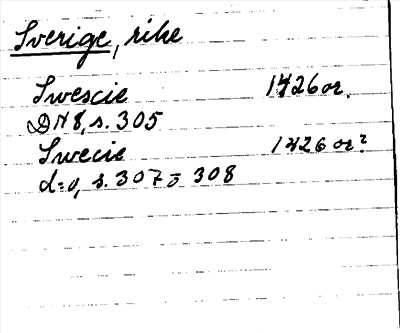 Sverige, rike
Swescie 1426 or.
DN 8, s. 305
Swecie 1426 or?
d:o, s. 307 o 308